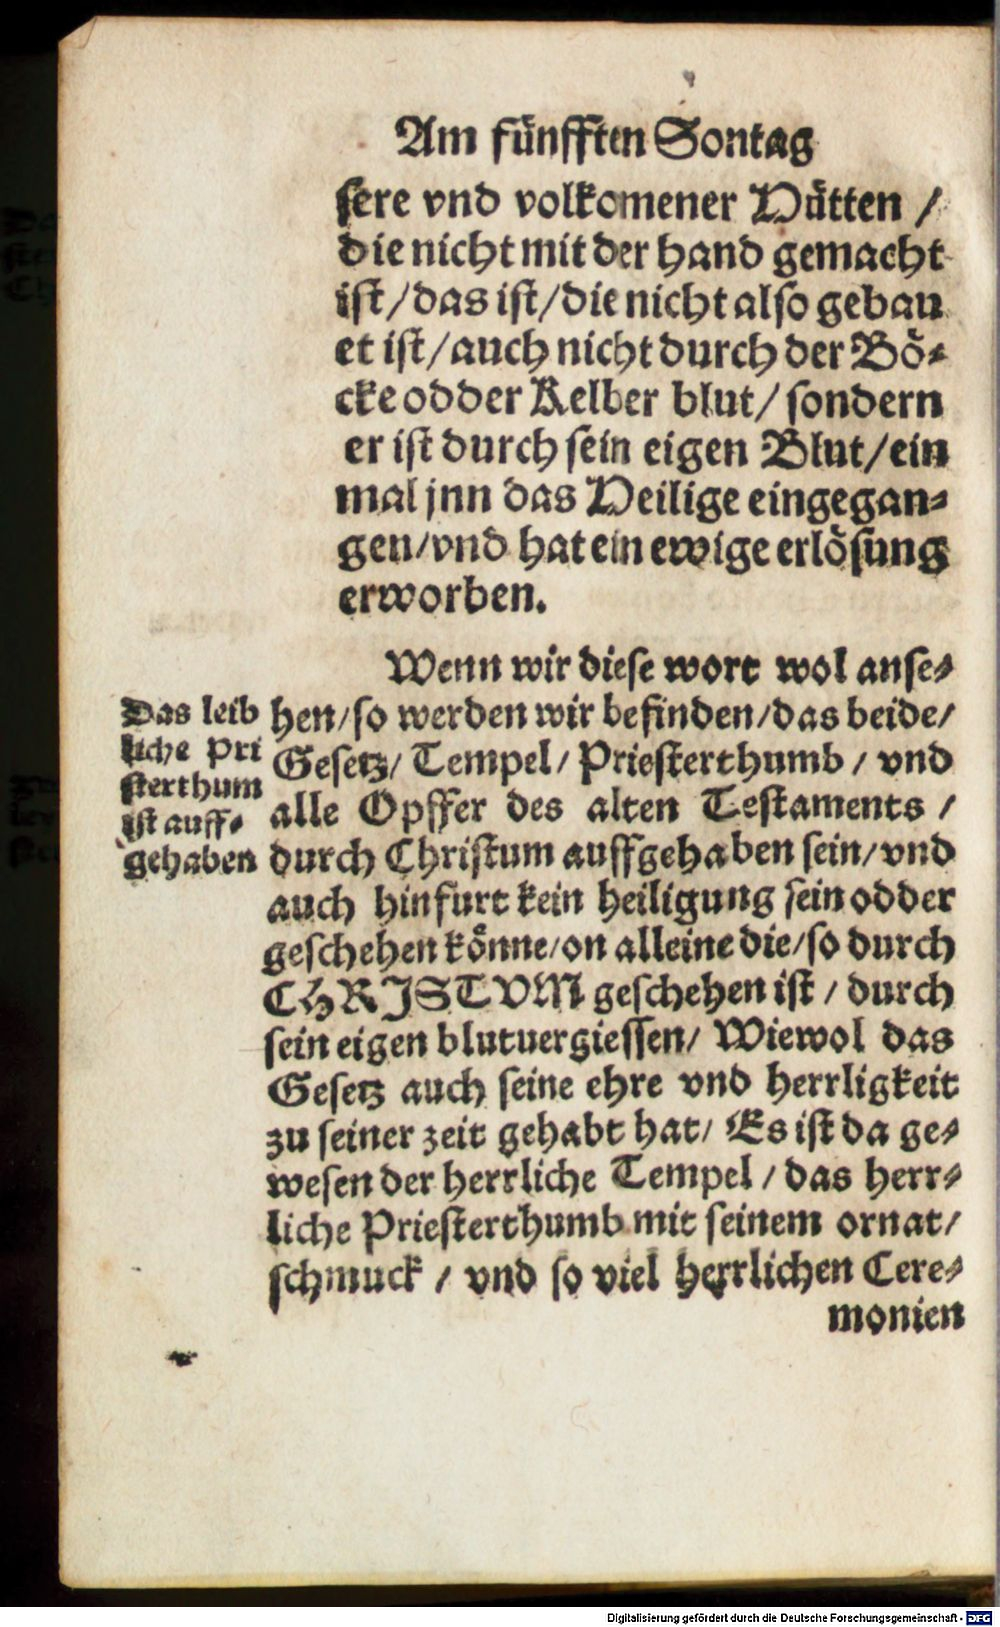 Am fünfften Sontag
sere vnd volkomener Hütten /
die nicht mit der hand gemacht
ist / das ist / die nicht also gebau
et ist / auch nicht durch der Bö-
cke odder Kelber blut / sondern
er ist durch sein eigen Blut / ein
mal jnn das Heilige eingegan-
gen / vnd hat ein ewige erlösung
erworben.
Wenn wir diese wort wol anse-
hen / so werden wir befinden / das beide /
Gesetz / Tempel / Priesterthumb / vnd
alle Opffer des alten Testaments /
durch Christum auffgehaben sein / vnd
auch hinfurt kein heiligung sein odder
geschehen könne / on alleine die / so durch
CHRISTVM geschehen ist / durch
sein eigen blutuergiessen / Wiewol das
Gesetz auch seine ehre vnd herrligkeit
zu seiner zeit gehabt hat / Es ist da ge-
wesen der herrliche Tempel / das herr-
liche Priesterthumb mit seinem ornat /
schmuck / vnd so viel herrlichen Cere-
monien
Das leib
liche Pri
sterthum
ist auff-
gehaben
Digitalisierung gefördert durch die Deutsche Forschungsgemeinschaft - DFG